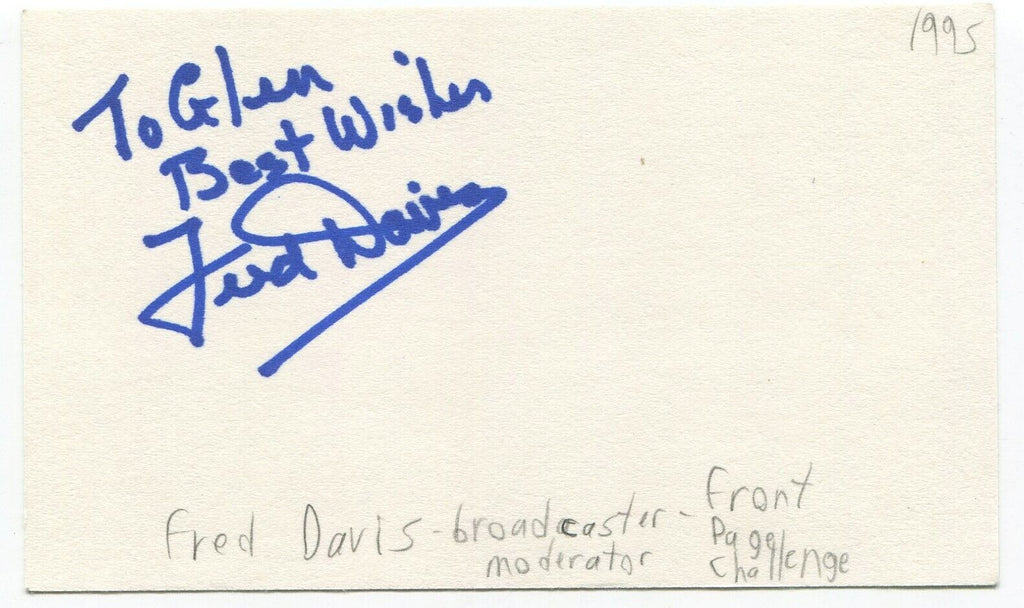 1995
To Glen
Best Wishes
Fred Davis
Fred Davis - broadcaster - Front
moderator Page
Challenge